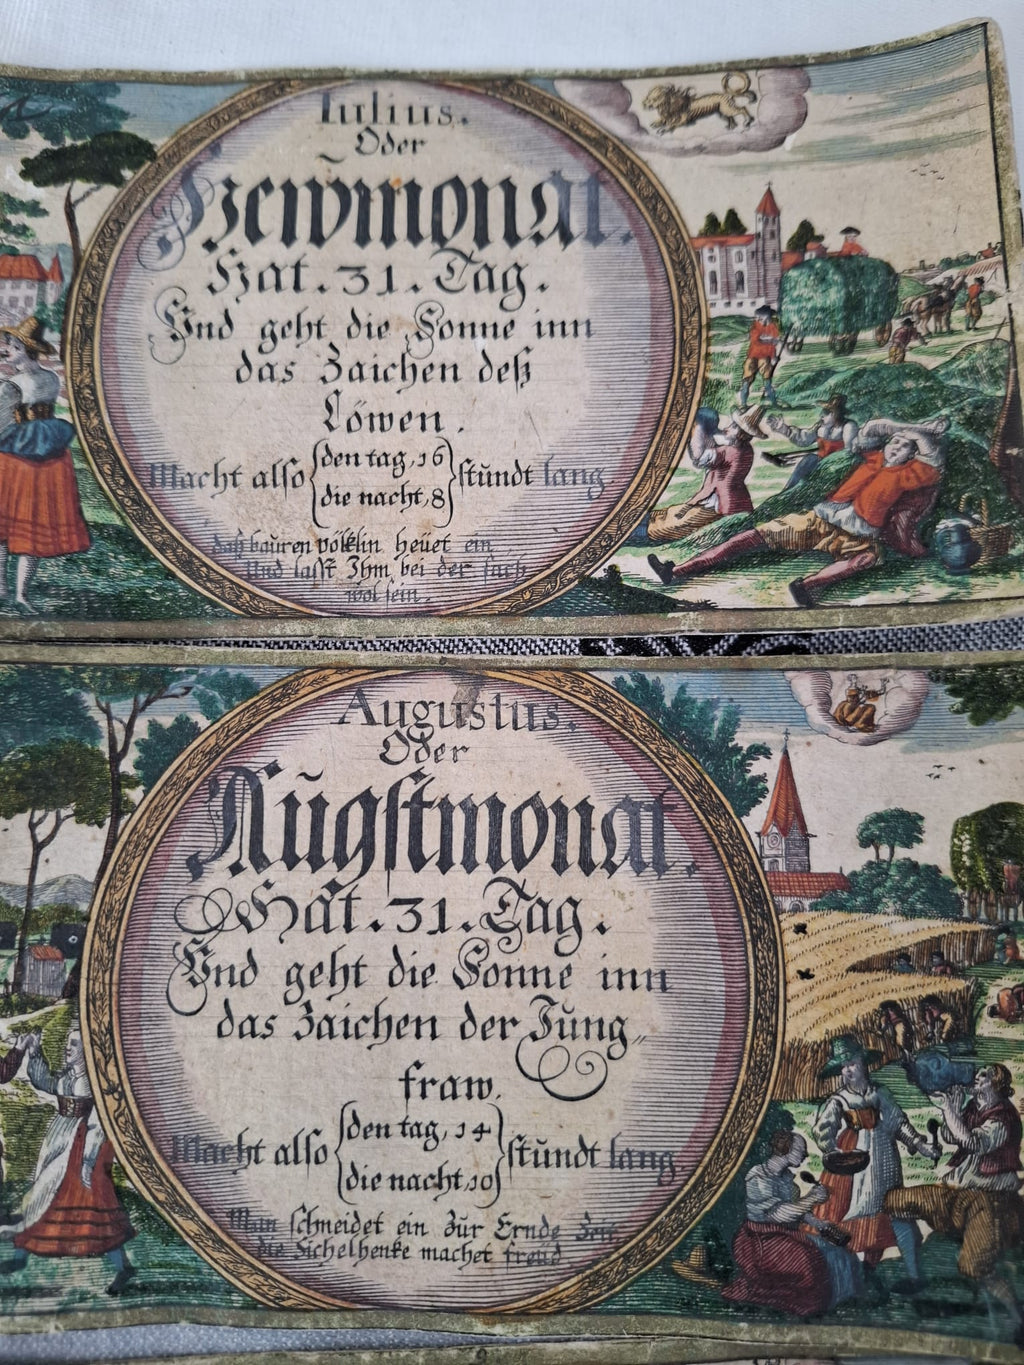 Iulius.
Oder
Hewmonat.
Hat. 31. Tag.
Vnd geht die Sonne inn
das Zaichen deß
Löwen.
Macht also {den tag, 16 / die nacht, 8} stundt lang
daß bauren völklin heüet ein
Und lasst Ihm bei der sach
wol sein.
Augustus.
Oder
Augstmonat.
Hat. 31. Tag.
Vnd geht die Sonne inn
das Zaichen der Jung„
fraw.
Macht also {den tag, 14 / die nacht, 10} stundt lang
Man schneidet ein zur Ernde Zeit
die Sichelhenke machet freud.
9